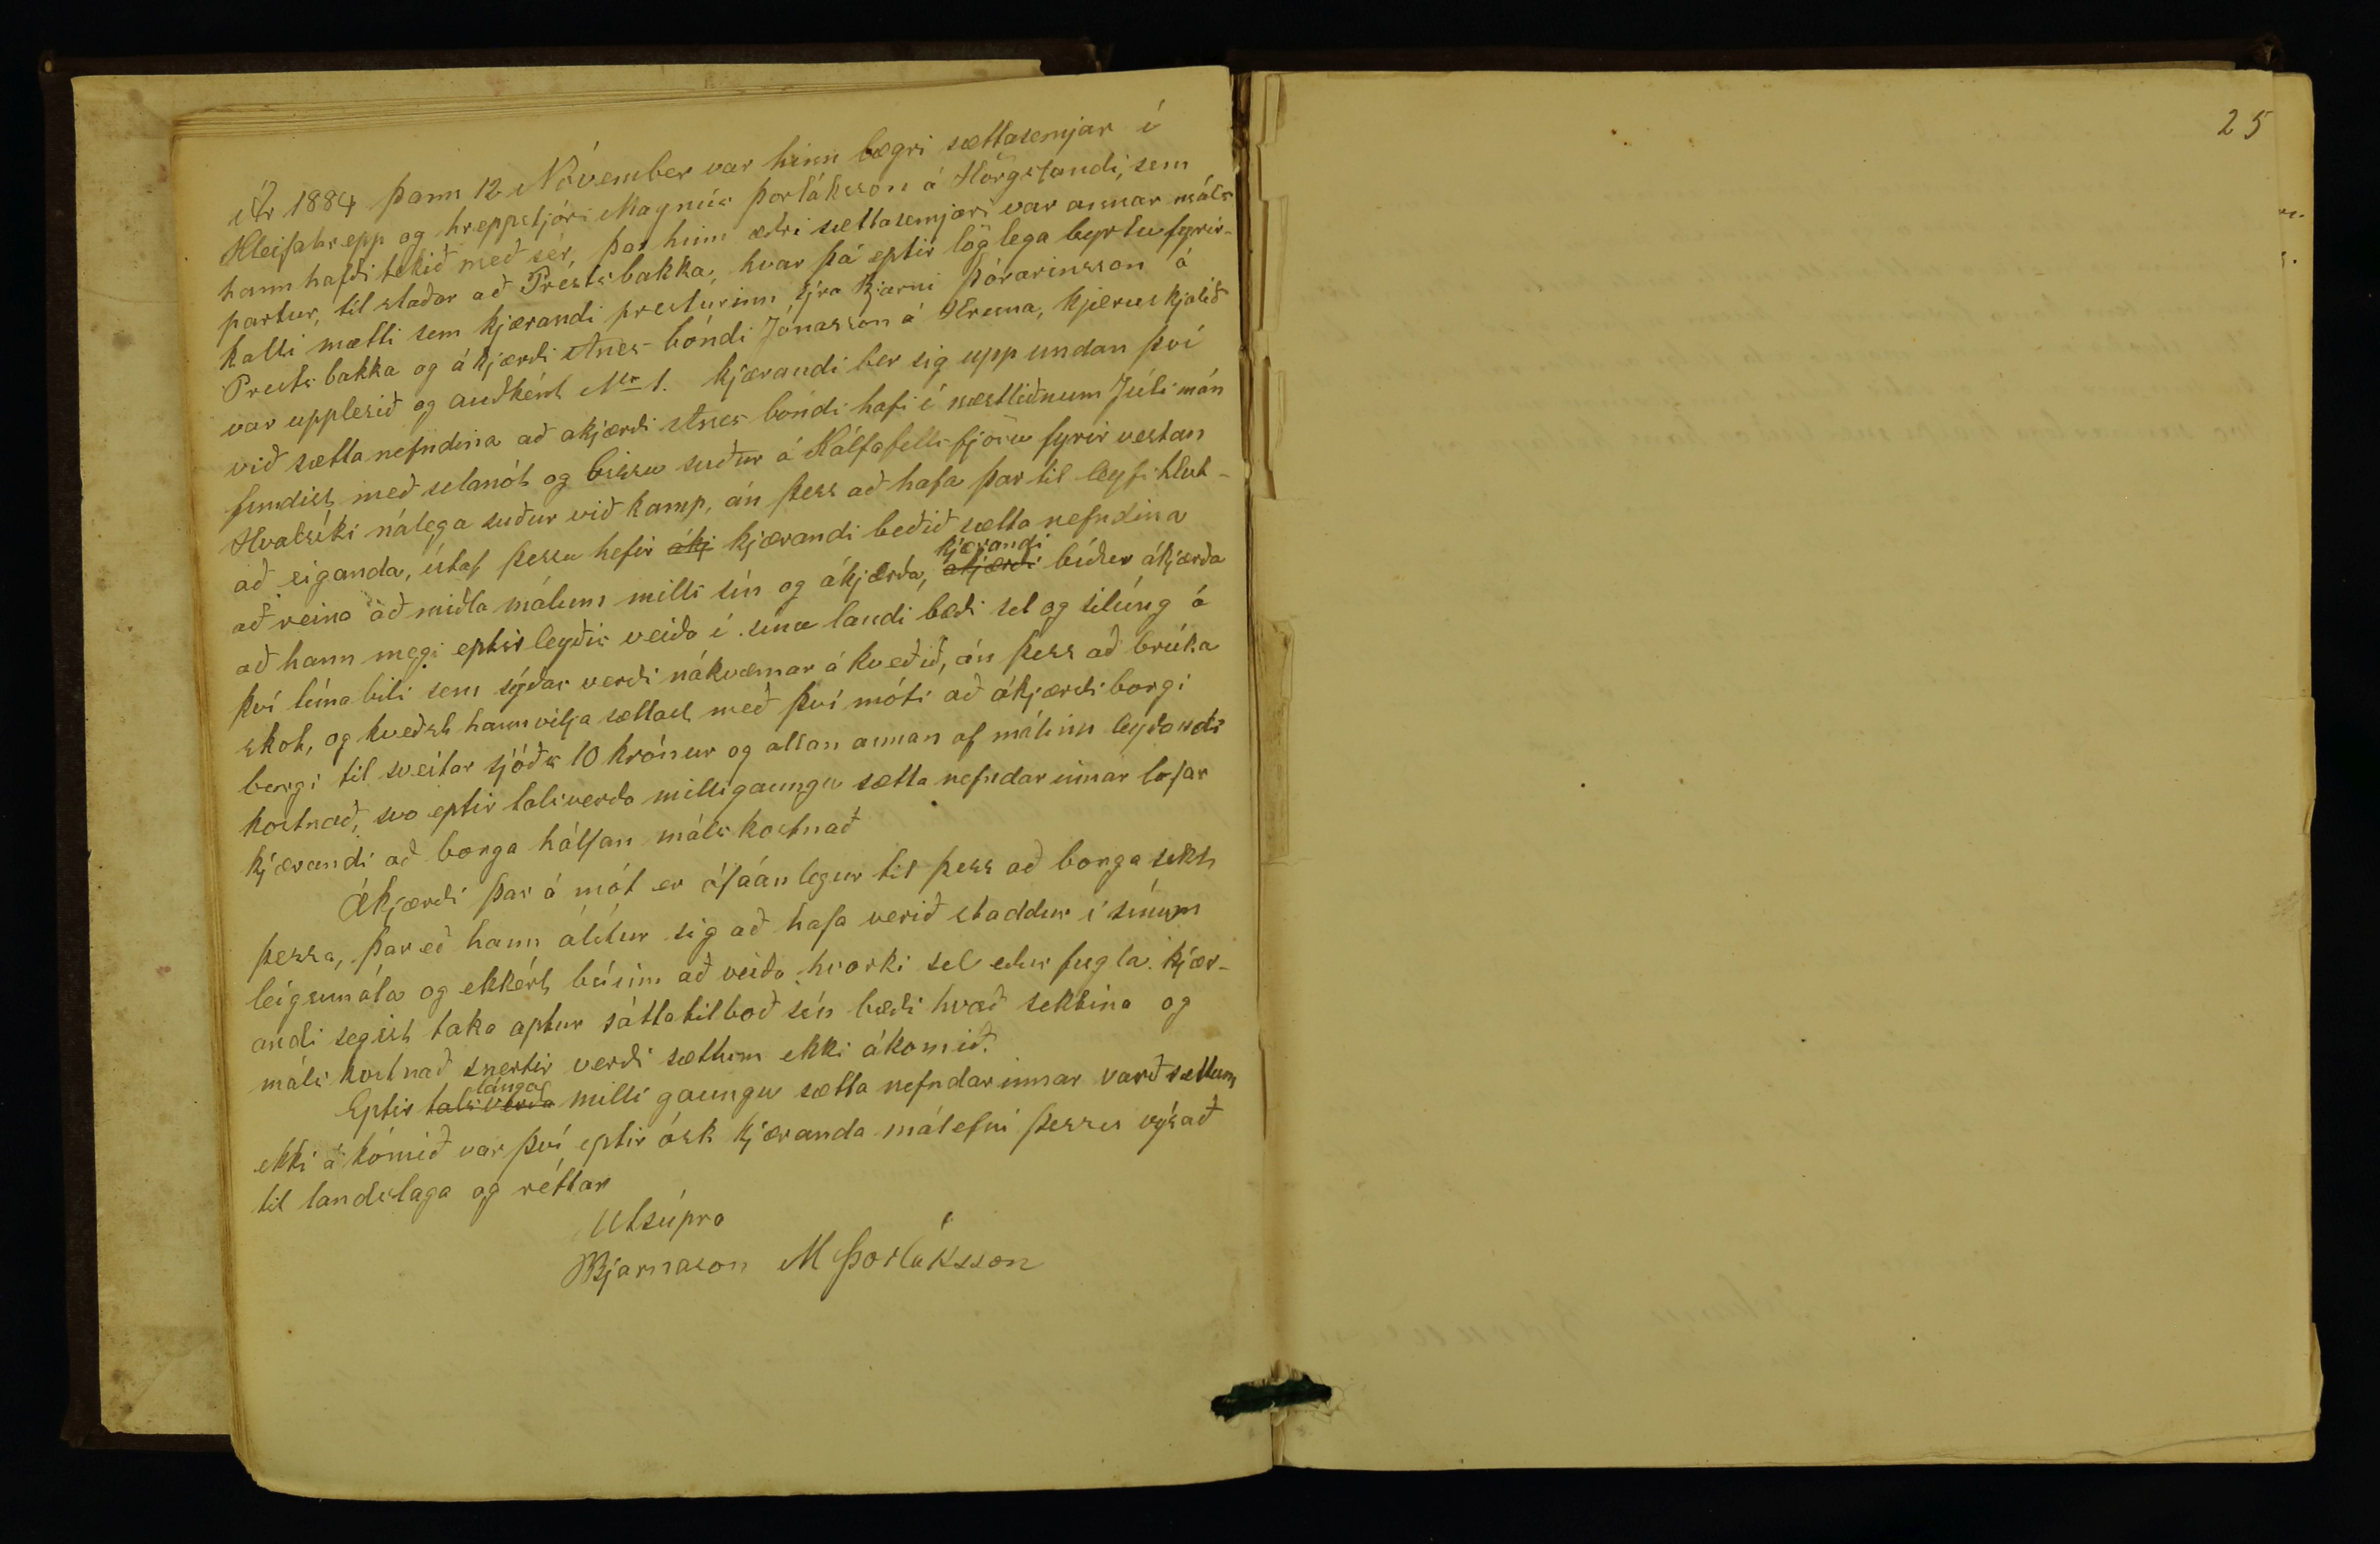 Ár 1884 þann 12 Nóvember var hinn lægri sættasemjar í
Kleifahrepp og hreppstjóri Magnús Þorláksson á Hörgslandi, sem
hann hafði tekið með sér, þar hinn ædri sættasemjari var annar máls
partur, til staðar að Préstsbakka, hvar þá eptir löglega byrtu fyrir-
kalli mætti sem kjærandi presturinn sjra Bjarni Þórarinsson á
Prestsbakka og ákjærði Anes bóndi Jónasson á Hruna, kjæruskjalið
var upplesið og auðként Nr 1. kjærandi ber sig upp undan því
við sættanefndina að akjærði Anes bóndi hafi í næstliðnum Júlí mán
fundist með selanót og bissu suður á Kálfafellsfjöru fyrir vestan
Hvalsíki nálega suður við kamp, án þess að hafa þar til leyfi hlut-
að eiganda, útaf þessu hefir ákj kjærandi beðið sætta nefndina
að reina að miðla málum milli sín og ákjærða, akjærði kjærandi bíður ákjærða
að hann megi eptirleyðis veiða í sínu landi bæði sel og silúng á
því tímabili sem sýðar verði nákvæmar á kveðið, án þess að brúka
skot, og kveðst hann vilja sættast með því móti að ákjærði borgi
borgi til sveitar sjóðs 10 krónur og allan annan af málinu leyðandi
kostnað, svo eptir talsverða milligaungu sætta nefndarinnar lofar
kjærandi að borga hálfan málskostnað
Ákjærði þar á mót er ófáánlegur til þess að borga sekt
þessa, þar eð hann álítur sig að hafa verið staddur í sínum
leigumála og ekkért búinn að veiða hvorki sel eður fugla. Kjær-
andi segist taka aptur sáttatilboð sín bæði hvað sektina og
máls kostnað snertir verði sættum ekki ákomið.
Eptir talsverða lánga milli gaungu sætta nefndarinnar varð sættum
ekki á komið var því eptir ósk kjæranda málefni þessu výsað
til landslaga og réttar
Utsúpra
BBjarnason M Þorláksson
25